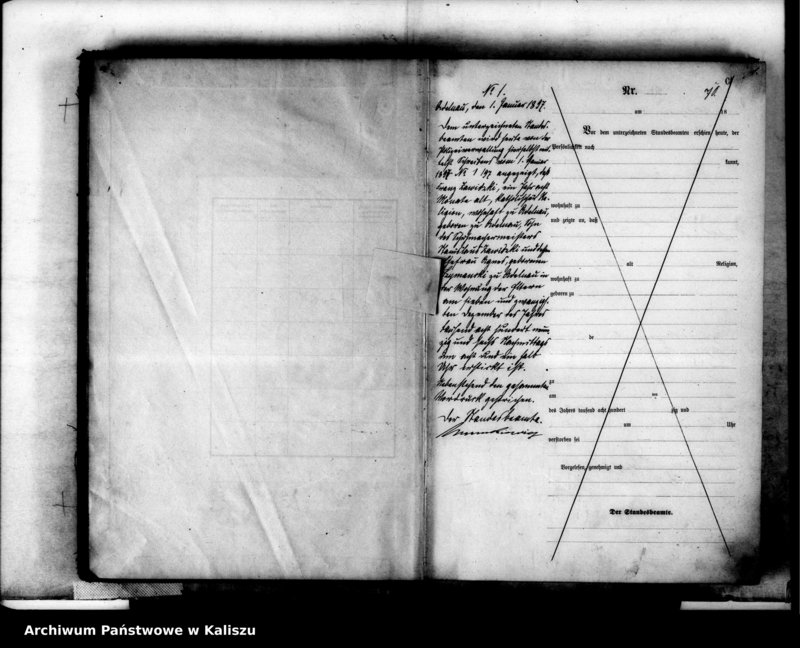 No 1.
Adelnau, den 1. Januar 1897.
Dem unterzeichneten Standes-
beamten wird heute von der
Polizeiverwaltung hierselbst mit-
telst Schreibens vom 1. Januar
1897 No 1/97 angezeigt, daß
Franz Zawidzki, ein Jahr acht
Monate alt, katholischer Re-
ligion, wohnhaft zu Adelnau,
geboren zu Adelnau, Sohn
des Schuhmachermeisters
Stanislaus Zawidzki und
Ehefrau Agnes, geborenen
Szymanski zu Adelnau in
der Wohnung der Eltern
am sieben und zwanzig-
ten Dezember des Jahres
tausend acht hundert neun-
zig und sechs Nachmittags
um acht und ein halb
Uhr erstickt ist.
Nebenstehend den gesammten
Vordruck gestrichen.
Der Standesbeamte.
Nr.
am 18
Vor dem unterzeichneten Standesbeamten erschien heute, der
Persönlichkeit nach
kannt,
wohnhaft zu
und zeigte an, daß
alt Religion,
wohnhaft zu
geboren zu
de
zu
am
des Jahres tausend acht hundert zig und
um Uhr
verstorben sei
Vorgelesen, genehmigt und
Der Standesbeamte.
Archiwum Państwowe w Kaliszu